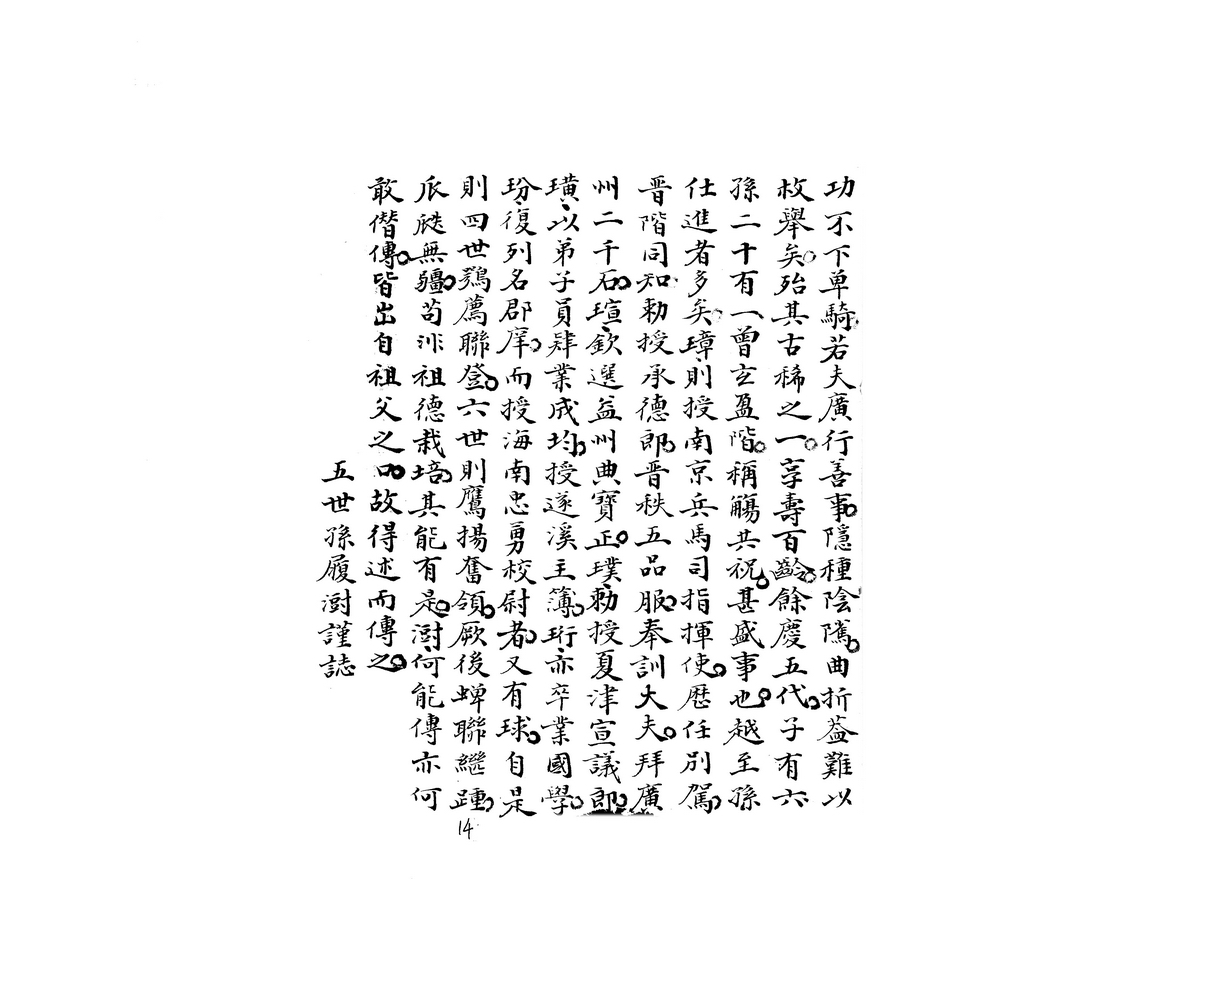 功不下单騎若夫廣行善事。隱種陰隲。曲折蓋難以
枚舉矣。殆其古稀之一。享壽百齡。餘慶五代。子有六
孫二十有一曾玄盈階。稱觴共祝。甚盛事也。越至孫
仕進者多矣。璋則授南京兵馬司指揮使。歷任別駕。
晋階同知勅授承德郎。晋秩五品服。奉訓大夫。拜廣
州二千石。瑄、欽選益州典寶正。璞、勅授夏津宣議郎。
璜、以弟子員肄業成均。授遂溪主簿。珩、亦卒業國學。
玢、復列名郡庠。而授海南忠勇校尉者。又有球。自是
則四世鶚薦聯登。六世則鷹揚奮領。厥後蟬聯繼踵。
瓜瓞無疆。苟非祖德栽培。其能有是。澍、何能傳亦何
敢僭傳。皆出自祖父之口。故得述而傳之。
五世孫履澍謹誌
14